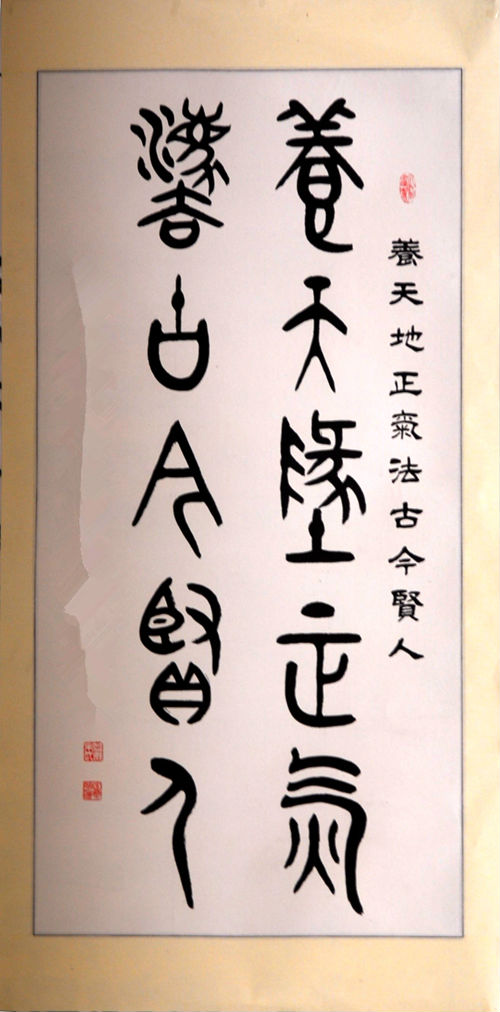 養天地正氣法古今賢人
養天墬正氣
灋古今賢人